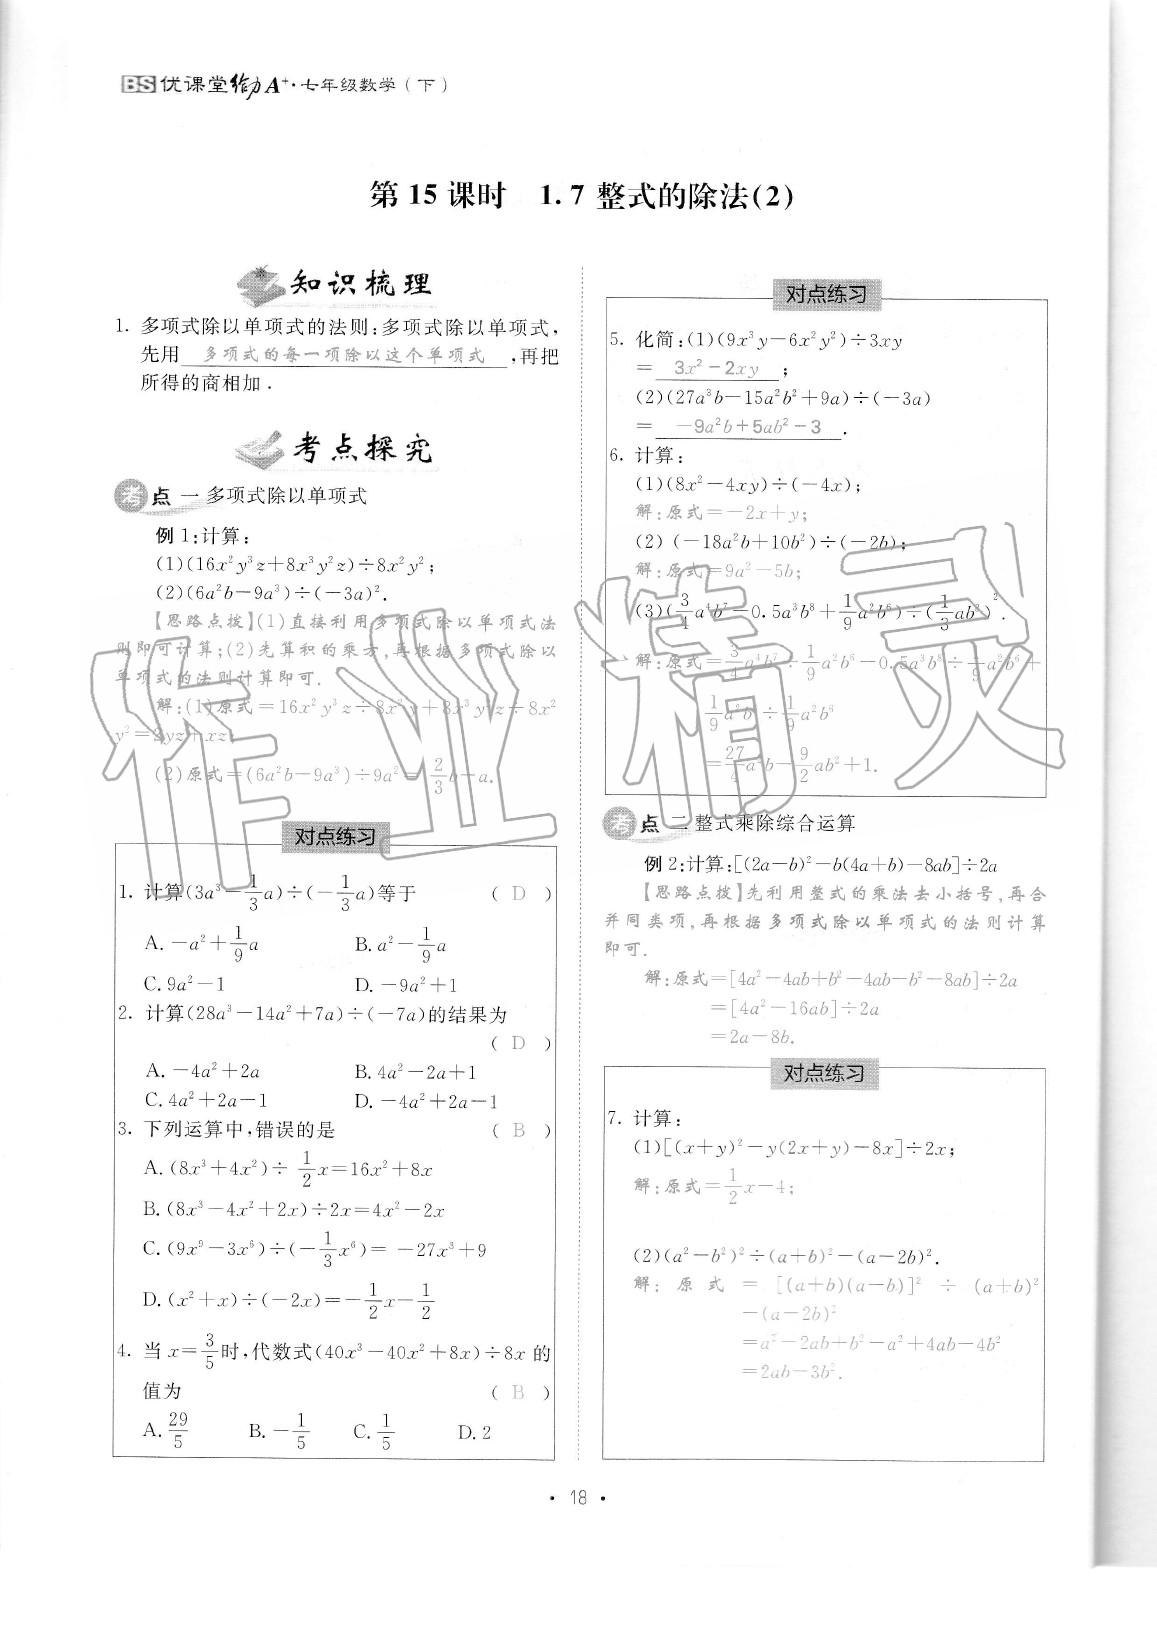 BS优课堂给力A⁺·七年级数学(下)
第15课时 1.7整式的除法(2)
知识梳理
1. 多项式除以单项式的法则:多项式除以单项式,
先用 多项式的每一项除以这个单项式 ,再把
所得的商相加.
考点探究
考点 一 多项式除以单项式
例1:计算:
(1)(16x²y³z+8x³y²z)÷8x²y²;
(2)(6a²b-9a³)÷(-3a)².
【思路点拨】(1)直接利用多项式除以单项式法
则即可计算;(2)先算积的乘方,再根据多项式除以
单项式的法则计算即可.
解:(1)原式=16x²y³z÷8x²y²+8x³y²z÷8x²
y²=2yz+xz;
(2)原式=(6a²b-9a³)÷9a²=2/3b-a.
对点练习
1. 计算(3a³-1/3a)÷(-1/3a)等于 ( D )
A. -a²+1/9a B. a²-1/9a
C. 9a²-1 D. -9a²+1
2. 计算(28a³-14a²+7a)÷(-7a)的结果为
( D )
A. -4a²+2a B. 4a²-2a+1
C. 4a²+2a-1 D. -4a²+2a-1
3. 下列运算中,错误的是 ( B )
A. (8x³+4x²)÷1/2x=16x²+8x
B. (8x³-4x²+2x)÷2x=4x²-2x
C. (9x⁹-3x⁶)÷(-1/3x⁶)= -27x³+9
D. (x²+x)÷(-2x)=-1/2x-1/2
4. 当x=3/5时,代数式(40x³-40x²+8x)÷8x的
值为 ( B )
A. 29/5 B. -1/5 C. 1/5 D. 2
对点练习
5. 化简:(1)(9x³y-6x²y²)÷3xy
= 3x²-2xy ;
(2)(27a³b-15a²b²+9a)÷(-3a)
= -9a²b+5ab²-3 .
6. 计算:
(1)(8x²-4xy)÷(-4x);
解:原式=-2x+y;
(2) (-18a²b+10b²)÷(-2b);
解:原式=9a²-5b;
(3)(3/4a⁴b⁷-0.5a³b⁸+1/9a²b⁶)÷(1/3ab³)².
解:原式=3/4a⁴b⁷÷1/9a²b⁶-0.5a³b⁸÷1/9a²b⁶+
1/9a²b⁶÷1/9a²b⁶
=27/4a²b-9/2ab²+1.
考点 二 整式乘除综合运算
例2:计算:[(2a-b)²-b(4a+b)-8ab]÷2a
【思路点拨】先利用整式的乘法去小括号,再合
并同类项,再根据多项式除以单项式的法则计算
即可.
解:原式=[4a²-4ab+b²-4ab-b²-8ab]÷2a
=[4a²-16ab]÷2a
=2a-8b.
对点练习
7. 计算:
(1)[(x+y)²-y(2x+y)-8x]÷2x;
解:原式=1/2x-4;
(2)(a²-b²)²÷(a+b)²-(a-2b)².
解: 原式 = [(a+b)(a-b)]² ÷ (a+b)²
-(a-2b)²
=a²-2ab+b²-a²+4ab-4b²
=2ab-3b².
· 18 ·
作业精灵